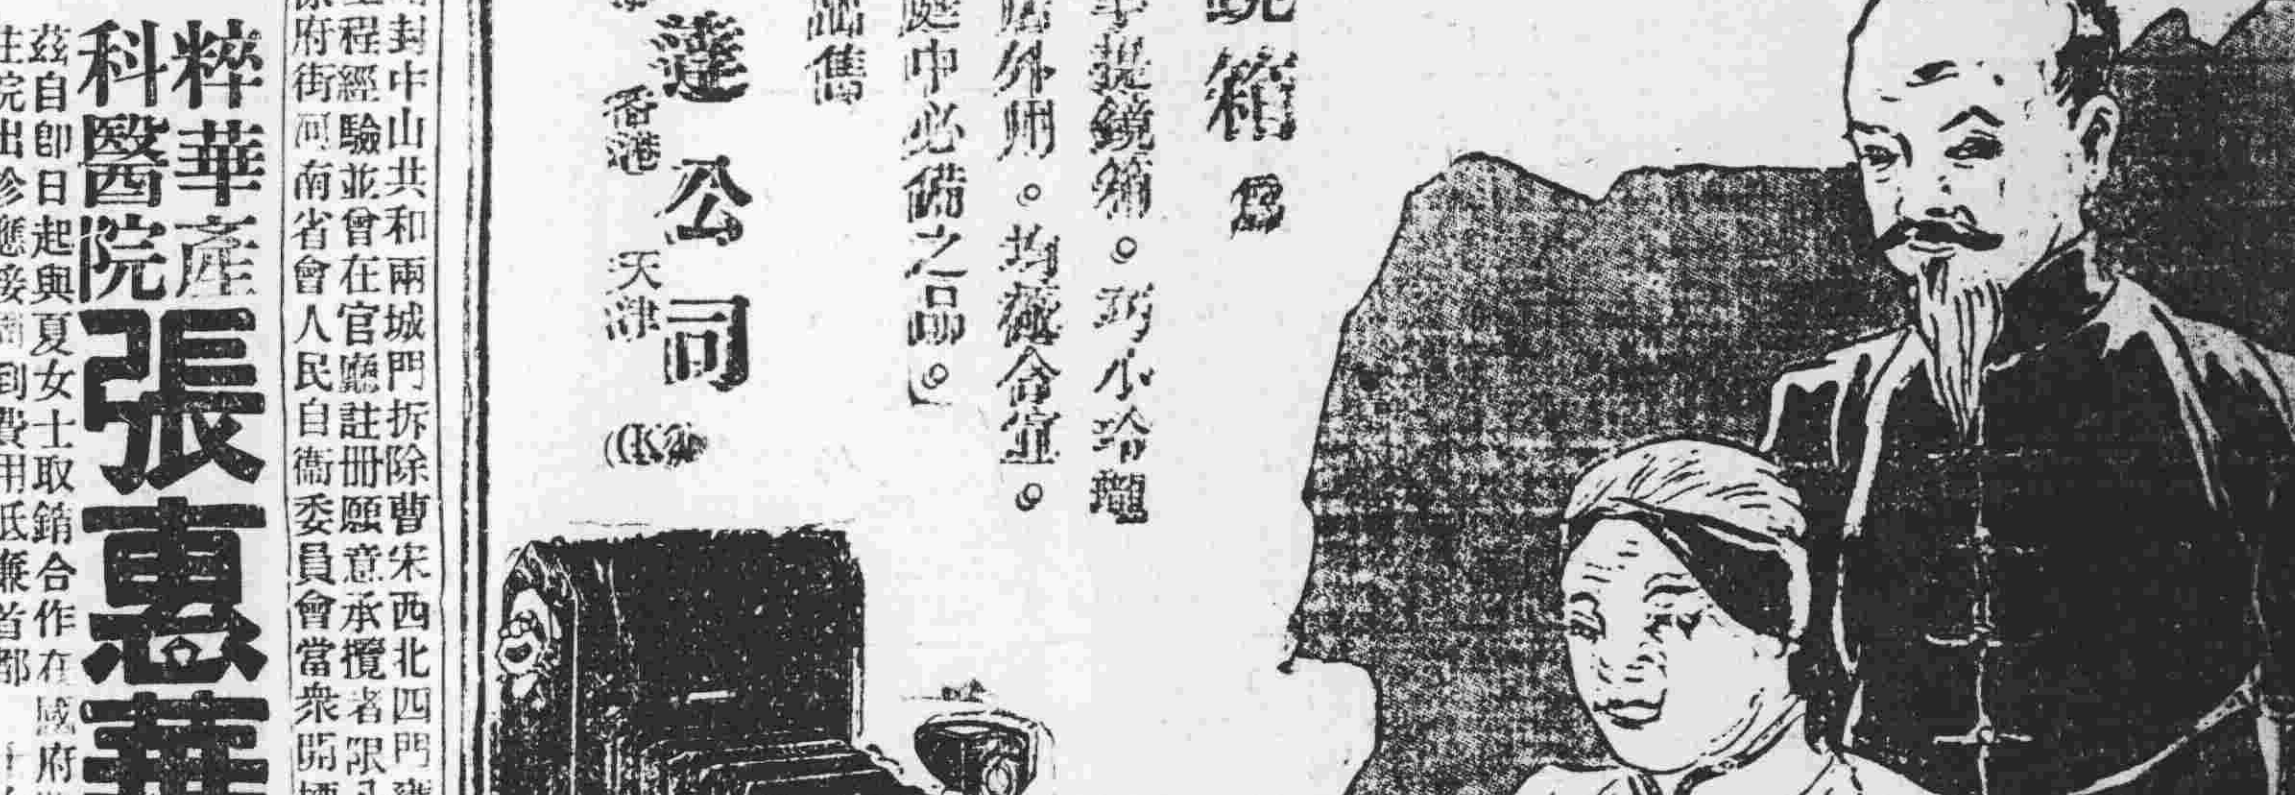 鏡箱
為
手提鏡箱。巧小玲瓏
居外州。均極合宜。
庭中必備之品。」
出售
達公司
香港 天津
封中山共和兩城門拆除曹宋西北四門
程經驗並曾在官廳註冊願意承攬者限
府街河南省會人民自衛委員會當衆開標
粹華產
科醫院
張惠華
茲自即日起與夏女士取銷合作在國府
住院出診應接周到費用低廉首都